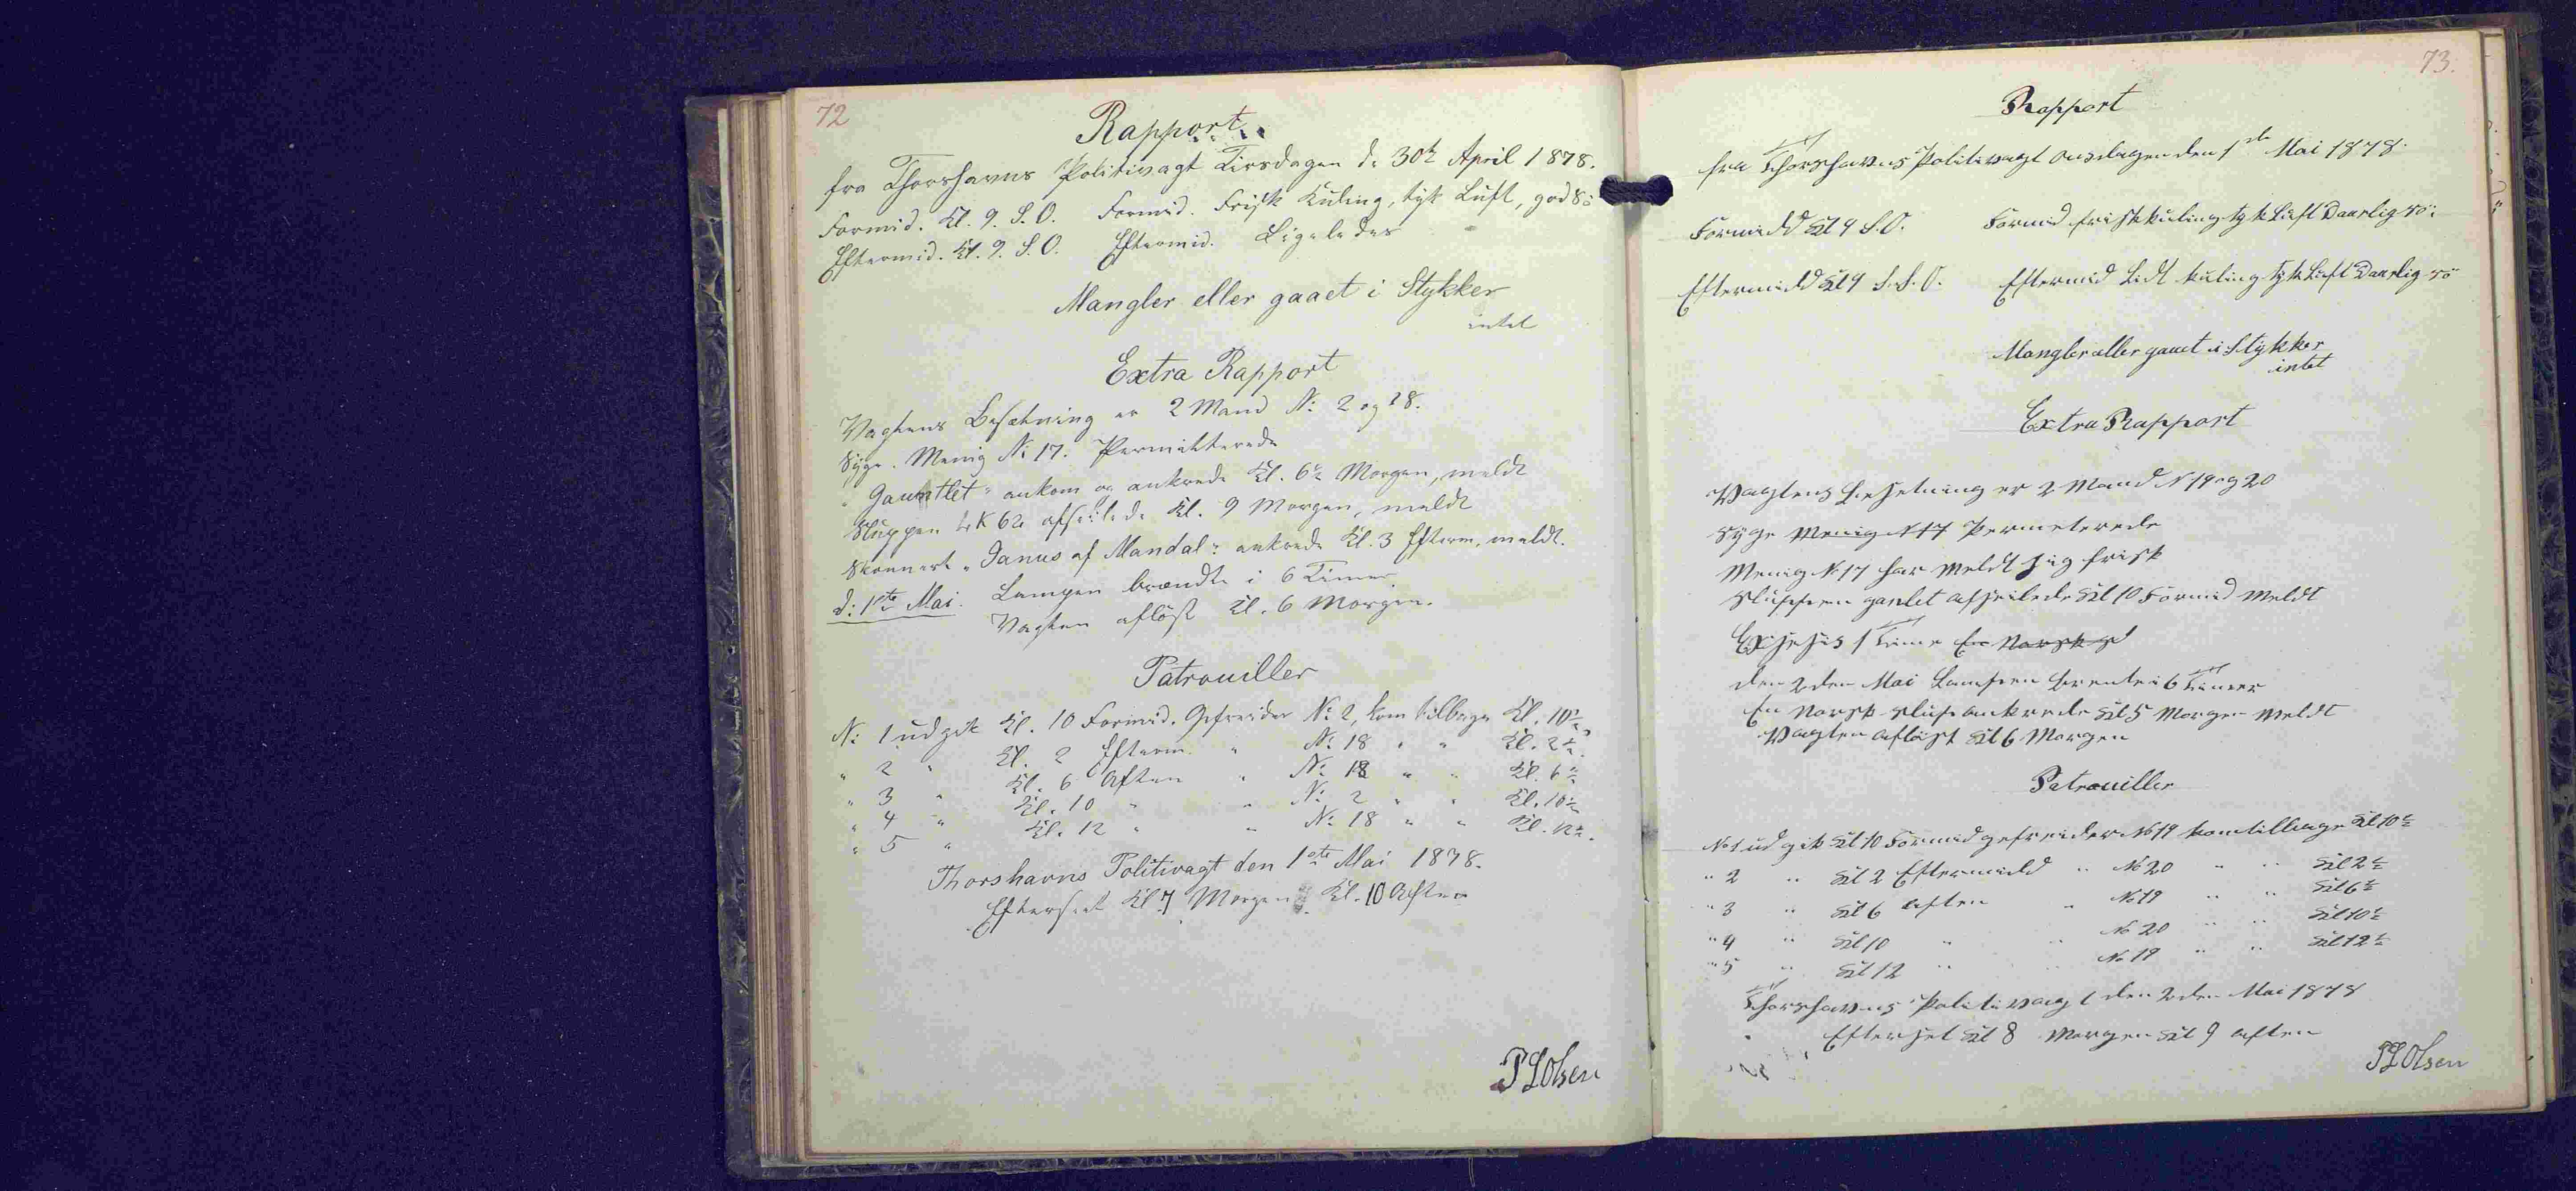 72
Rapport
fra Thorshavns Politivagt Tirsdagen d: 30te April 1878.
Formid. Kl. 9. S.O. Formid. Frisk Kuling, tyk Luft, god Sö
Eftermid. Kl. 9. S.O. Eftermid. Ligeledes
Mangler eller gaaet i Stykker
intet
Extra Rapport
Vagtens Besætning er 2 Mand No 2 og 18.
Syge. Menig No 17. Permitterede
"Gauntlet" ankom og ankrede Kl. 6½ Morgen, meldt
Sluppen LK 62 afseilede Kl. 9 Morgen, meldt
Skonnert "Janus af Mandal" ankrede Kl. 3 Efterm. meldt.
d: 1ste Mai. Lampen brændte i 6 Timer.
Vagten aflöst Kl. 6 Morgen.
Patrouiller
No 1 udgik Kl. 10 Formid. Gefreider No 2, kom tilbage Kl. 10½
" 2 " Kl. 2 Efterm. " No 18 " " Kl. 2½.
" 3 " Kl. 6 Aften " No 18 " " Kl. 6½
" 4 " Kl. 10 " " No 2 " " Kl. 10½
" 5 " Kl. 12 " " No 18 " " Kl. 12½.
Thorshavns Politivagt den 1ste Mai 1878.
Efterseet Kl 7 Morgen Kl. 10 Aften
P L Olsen
73.
Rapport
fra Thorshavns Politivagt Onsdagen den 1ste Mai 1878.
Formidd Kl 9 S.O. Formid frisk kuling tyk Luft Daarlig sö
Eftermidd Kl 9 S.S.O. Eftermid Lidt kuling tyk Luft Daarlig sö
Mangler eller gaaet i Stykker
intet
Extra Rapport
Vagtens besetning er 2 Mand N 19 og 20
Syge Menig N 17 Permeterede
Menig No 17 har meldt sig frisk
Sluppen gantlet afseilede Kl 10 Formid meldt
Exsesis 1 Time En Norsk sl
den 2den Mai Lampen brente i 6 Timer
En Norsk slup ankrede Kl 5 Morgen meldt
Vagten aflöst Kl 6 Morgen
Patrouiller
No 1 udgik Kl 10 Formid gefreider No 19 kom tilbage Kl 10½
" 2 " Kl 2 Eftermidd " No 20 " " Kl 2½
" 3 " Kl 6 aften " No 19 " " Kl 6½
" 4 " Kl 10 " " No 20 " " Kl 10½
" 5 " Kl 12 " " No 19 " " Kl 12½
Thorshavns Politivagt den 2den Mai 1878
Efterset Kl 8 Morgen Kl 9 aften
P L Olsen